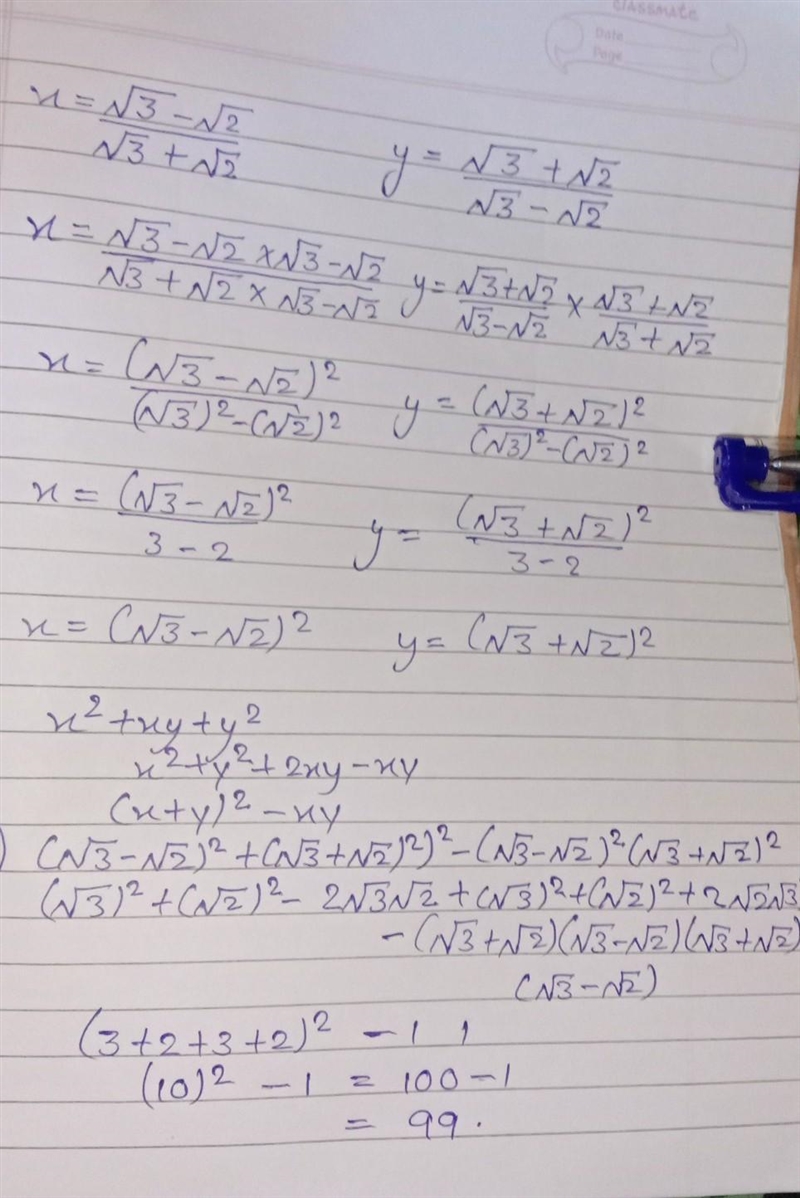 CLASSMATE
Date
Page
x = √3 - √2 / √3 + √2    y = √3 + √2 / √3 - √2
x = √3 - √2 × √3 - √2 / √3 + √2 × √3 - √2    y = √3 + √2 / √3 - √2 × √3 + √2 / √3 + √2
x = (√3 - √2)² / (√3)² - (√2)²    y = (√3 + √2)² / (√3)² - (√2)²
x = (√3 - √2)² / 3 - 2    y = (√3 + √2)² / 3 - 2
x = (√3 - √2)²    y = (√3 + √2)²
x² + xy + y²
x² + y² + 2xy - xy
(x + y)² - xy
) (√3 - √2)² + (√3 + √2)²)² - (√3 - √2)² (√3 + √2)²
(√3)² + (√2)² - 2√3√2 + (√3)² + (√2)² + 2√2√3
- (√3 + √2)(√3 - √2)(√3 + √2)
(√3 - √2)
(3 + 2 + 3 + 2)² - 1 1
(10)² - 1 = 100 - 1
= 99.